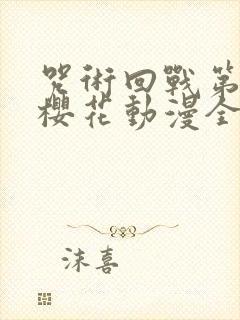 咒術回戰第
櫻花動漫全
沫喜